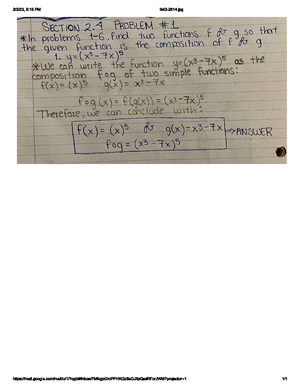 2/2/23, 8:15 PM
IMG-2614.jpg
SECTION 2.4 PROBLEM #1
*In problems 1-6, find two functions f & g so that
the given function is the composition of f & g.
1. y=(x³-7x)⁵
*We can write the function y=(x³-7x)⁵ as the
composition fog of two simple functions:
f(x)=(x)⁵ g(x)= x³-7x
fog(x)= f(g(x)) = (x³-7x)⁵
Therefore, we can conclude with:
f(x)=(x)⁵ & g(x)=x³-7x ⇒ANSWER
fog=(x³-7x)⁵
1/1